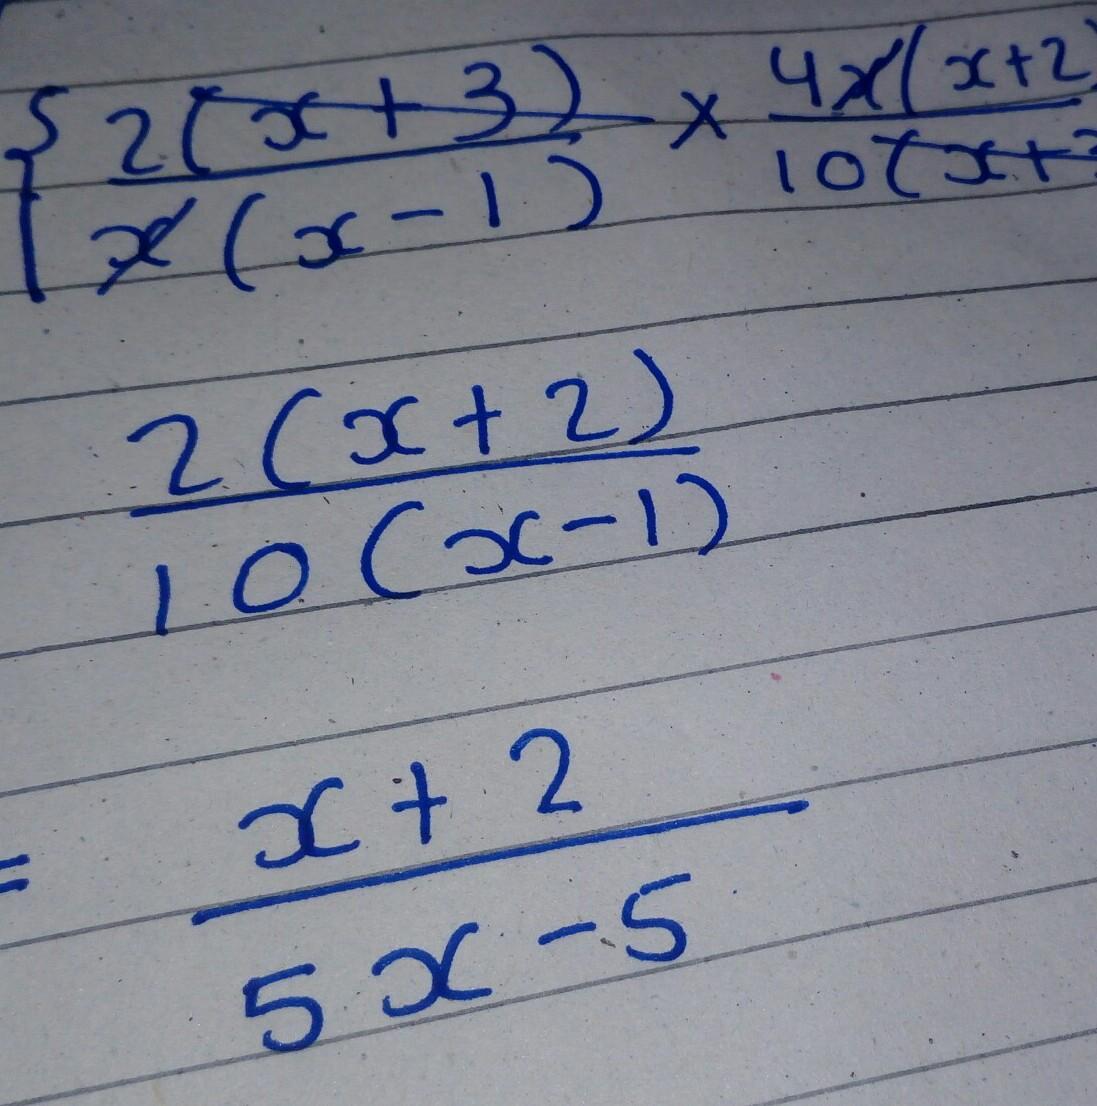 { 2(x + 3) / x(x - 1) × 4x(x+2) / 10(x+3
2(x+2) / 10(x-1)
= x+2 / 5x-5